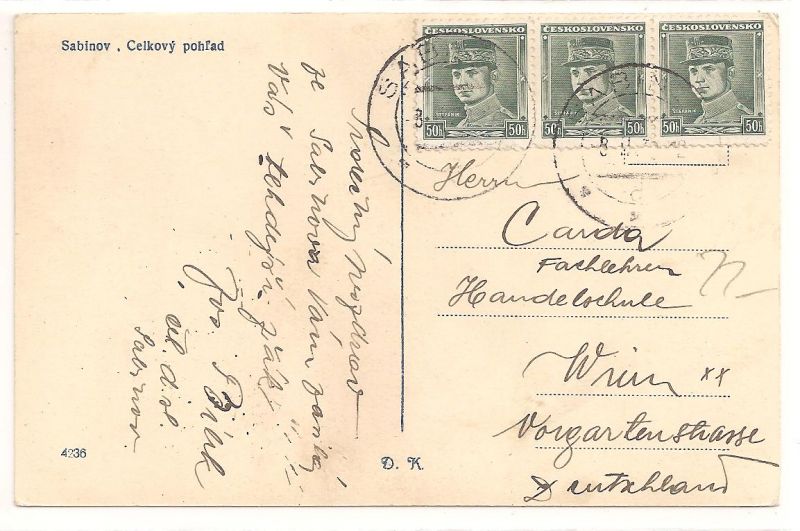 Sabinov , Celkový pohľad
ČESKOSLOVENSKO
ČESKOSLOVENSKO
ČESKOSLOVENSKO
ŠTEFÁNIK
ŠTEFÁNIK
ŠTEFÁNIK
50h 50h
50h 50h
50h 50h
Srdečný pozdrav
ze Sabinova Vám zasílá
Váš žák
Jos. Bílek
Sabinov
Herrn
Canda
Fachlehrer
Handelschule
Wien XX
Vorgartenstrasse
Deutschland
4236
D. K.